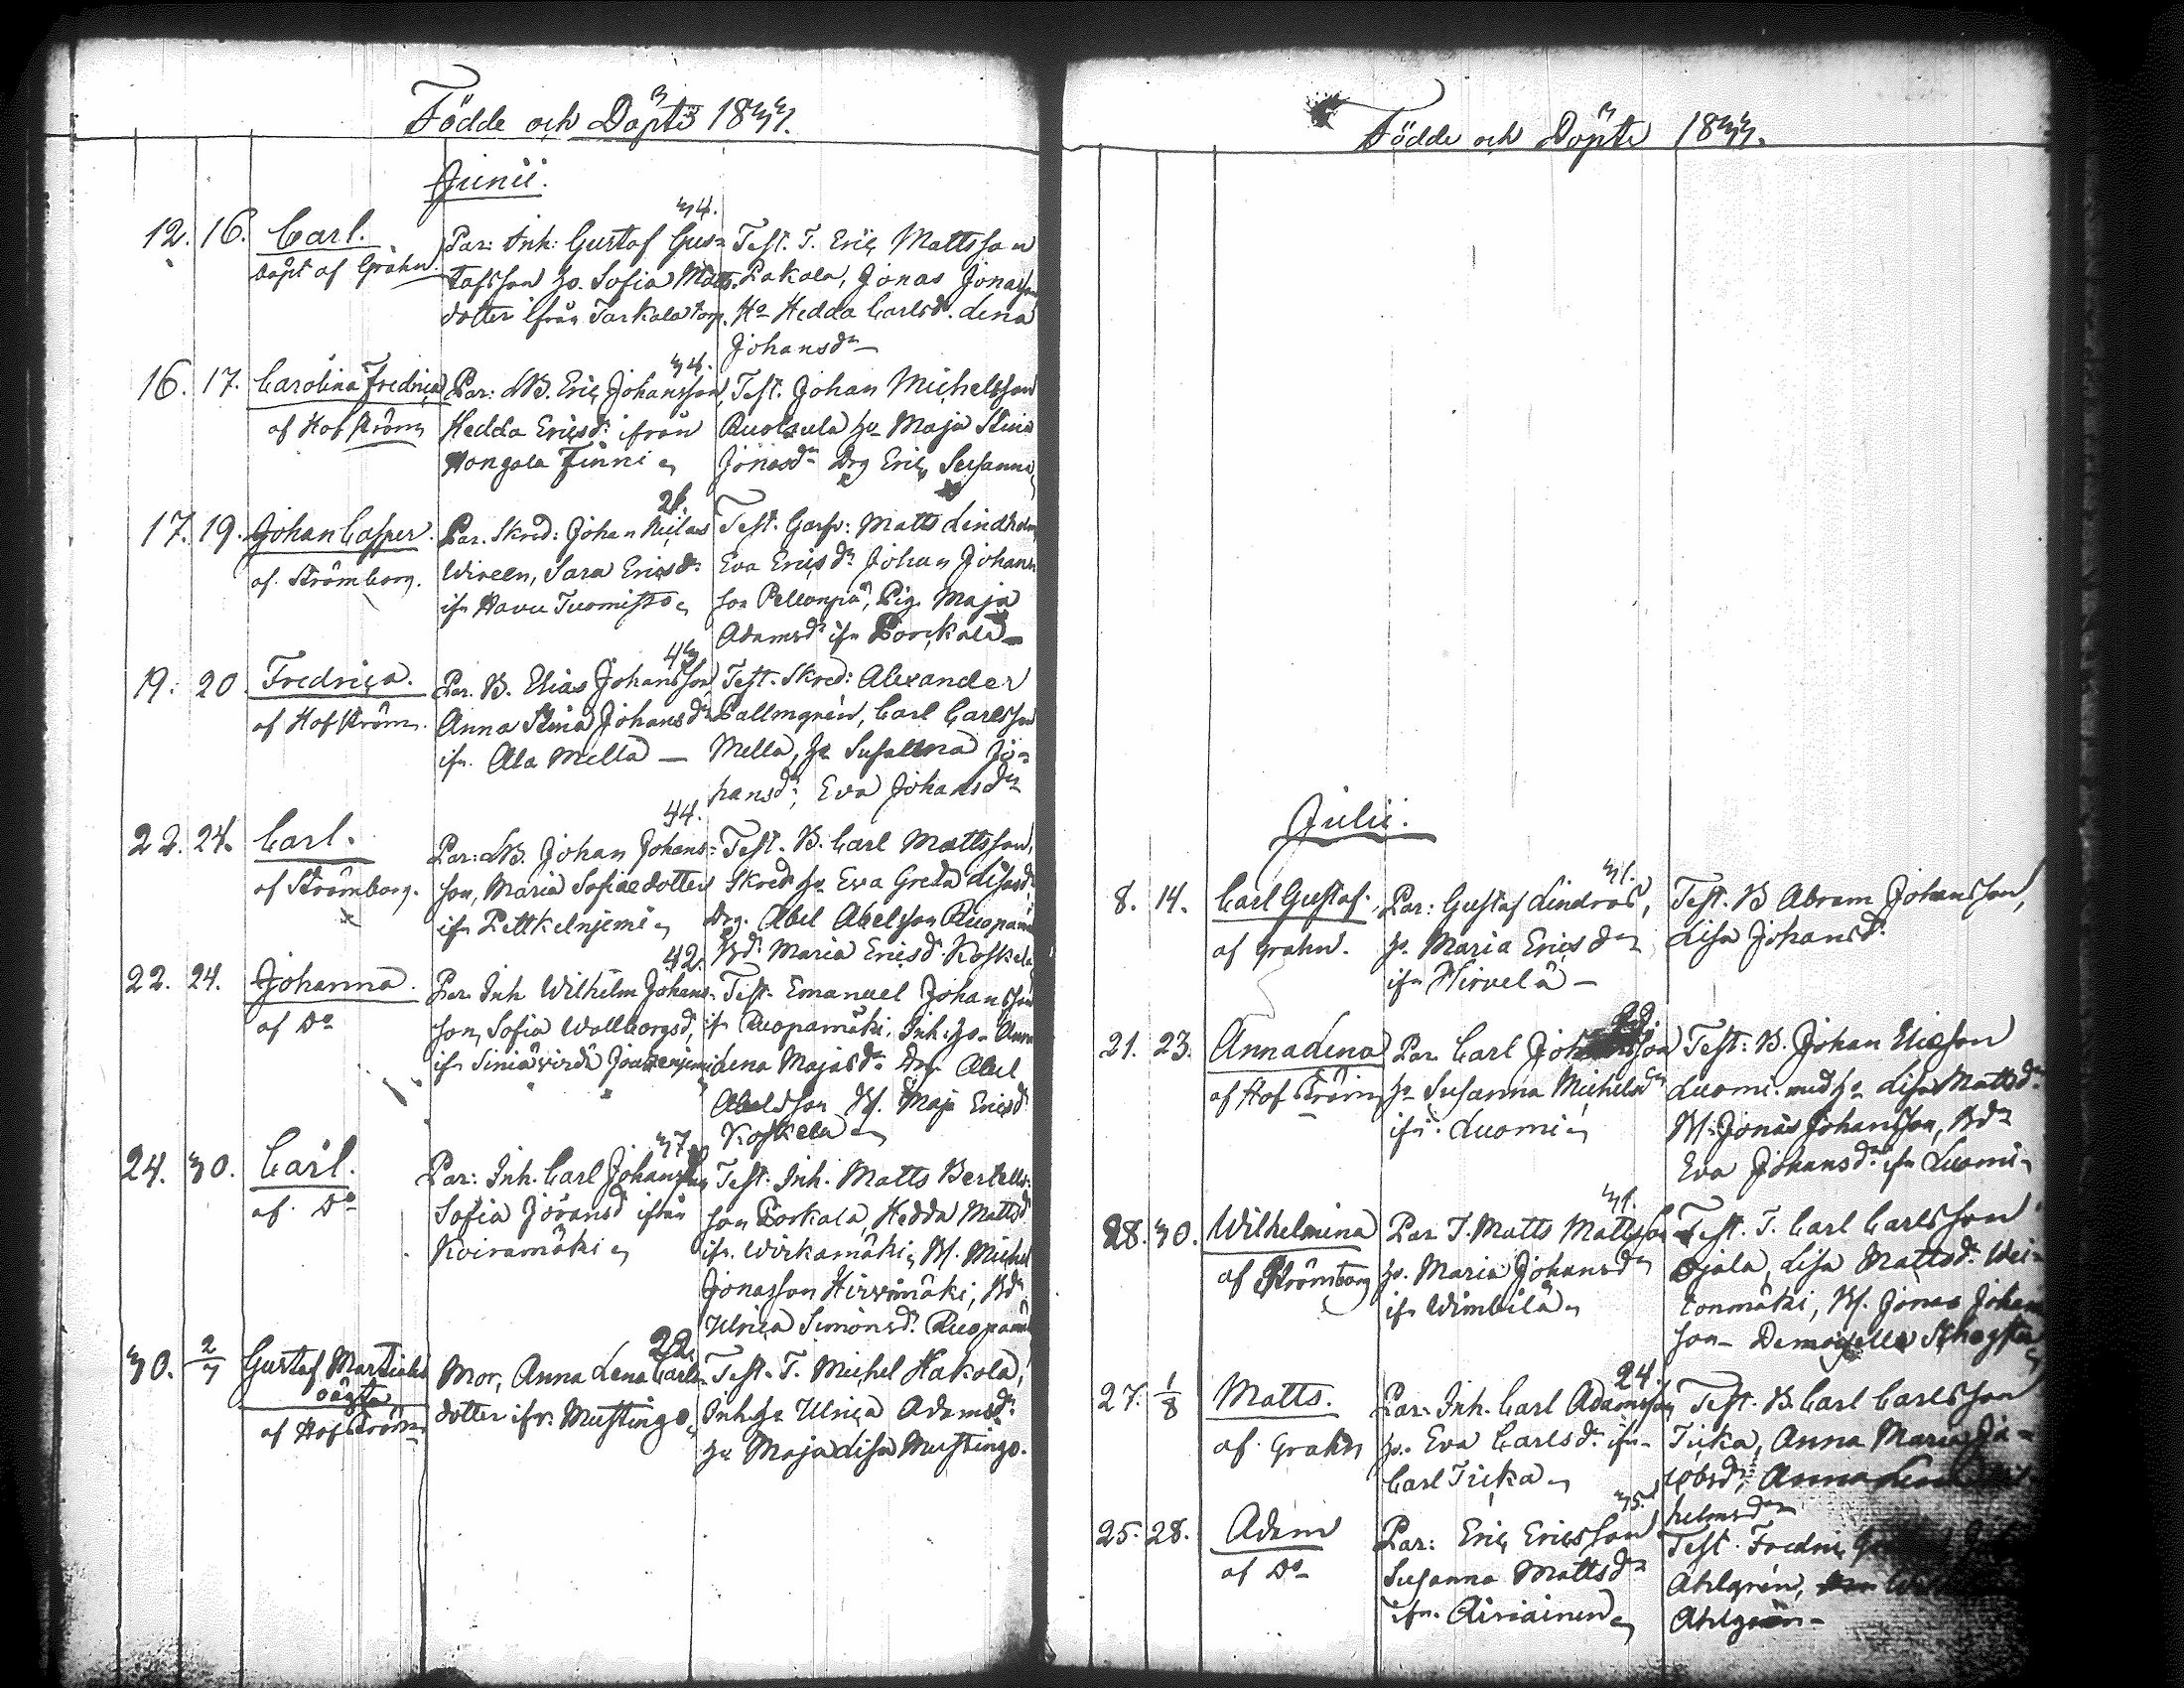 Födde och Döpte 1833.
Junii.
12. 16. Carl.
döpt af Grahn.
Par: Inh: Gustaf Gus-
tafsson h. Sofia Matts-
dotter ifrån Tarkala torp.
34.
Test. T. Eric Mattsson
Pakala, Jonas Jonasson
Hu Hedda Carlsdr. Lena
Johansdr
16. 17. Carolina Fredrica
af Hofström
Par: LB. Eric Johansson,
Hedda Ericsdr ifrån
Hongola Finni
34.
Test. Johan Michelsson
Ruoksula hu Maja Stina
Jonasdr Drg Eric, Susanna
17. 19. Johan Casper.
af. Strömborg.
Par. Skred: Johan Niclas
Wireen, Sara Ericsdr
ifn Havu Tuomisto
28.
Test. Garfv: Matts Lindholm
Eva Ericsdr Johan Johans-
son Pellonpä, Pig. Maja
Adamsdr ifn Porckala
19. 20 Fredrica.
af Hofström.
Par. B. Elias Johansson,
Anna Stina Johansdr
ifn. Ala Mella
43
Test. Skred: Alexander
Pallmgrén, Carl Carlsson
Mella, hu Susanna Jo-
hansdr, Eva Johansdr
22. 24. Carl.
af Strömborg.
Par: LB. Johan Johans-
son, Maria Sofiaedotter
ifn Pettkelnjemi
34.
Test. B. Carl Mattsson,
Skred hu Eva Greta Lisasdr
Drg. Abel Abelsson Ruopamä
Bdr Maria Ericsdr. Koskela
22. 24. Johanna.
af Do
Par. Inh Wilhelm Johans-
son, Sofia Wallborgsd,
ifn Siniävirdä
42.
Test. Emanuel Johansson
ifn Ruopamäki, Inh: hu Anna
Lena Majasdr Drg Abel
Abelsson Bf. Maja Ericsdr
Koskela
24. 30. Carl.
af. Do
Par: Inh. Carl Johansson
Sofia Jöransd ifrån
Koiramäki
37.
Test: Inh. Matts Bertells-
son Porkala, Hedda Mattsdr
ifn. Wirkamäki, Bf. Michel
Jonasson Hirvimäki, Bdr
Ulrica Simonsdr. Ruopamä
30. 2/7 Gustaf Martialis
oägta
af Hofström
Mor, Anna Lena Carls-
dotter ifr. Mustingo
22.
Test. T. Michel Hakola,
Inh. hu Ulrica Adamsdr
hu Maja Lisa Mustingo.
Födde och Döpte 1833.
Julii.
8. 14. Carl Gustaf.
af Grahn.
Par: Gustaf Lindros,
h. Maria Ericsdr
ifn Hirvelä
31.
Test. B Abram Johansson,
Lisa Johansdr
21. 23. Anna Lena
af Hofström
Par. Carl Johansson
hu Susanna Michelsdr
ifn. Luomi
29.
Test: B. Johan Eliesson
Luomi med hu Lisa Mattsdr
Bf. Jonas Johansson, Bdr
Eva Johansdr ifn Luomi
28. 30. Wilhelmina
af Strömborg
Par T. Matts Mattsson
h. Maria Johansdr
ifn Wimbilä
31.
Test. T. Carl Carlsson
Ojala, Lisa Mattsdr Wei-
tonmäki, Bf. Jonas Johans
son Demoiselle
27. 1/8 Matts.
af. Grahn
Par: Inh. Carl Adamsson
h. Eva Carlsdr ifn
Carl Ticka
24.
Test. B. Carl Carlsson
Ticka, Anna Maria Ja-
cobsdr, Anna
helmsdr
25. 28. Adam
af Do
Par: Eric Ericsson
Susanna Mattsdr
ifn. Airiainen
35.
Test. Fredric
Ahlgrén,
Ahlgrén